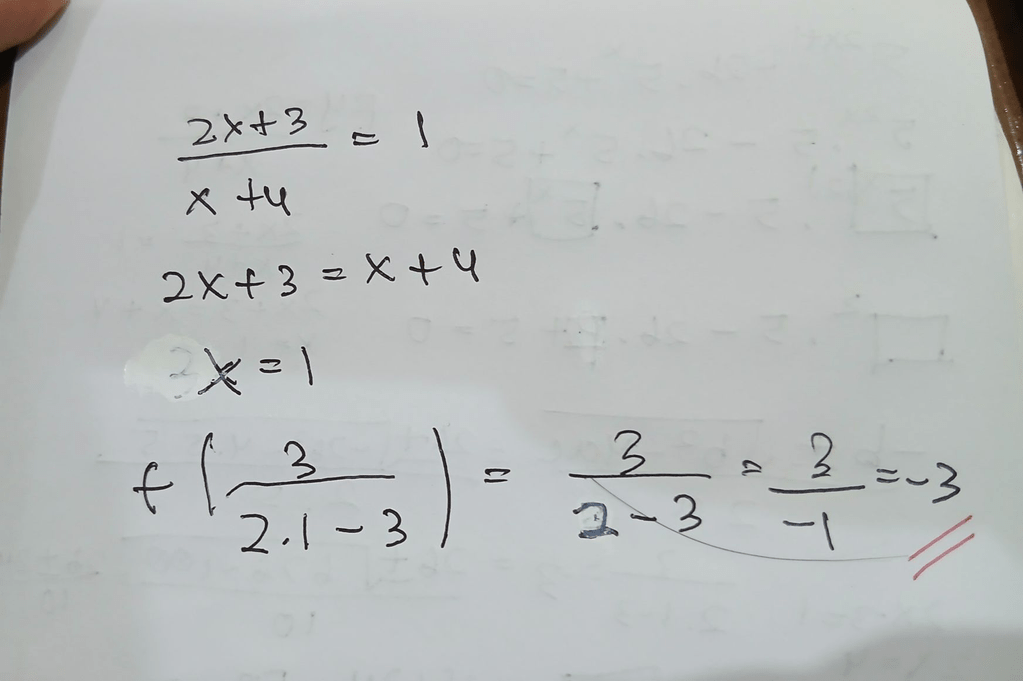 2x+3/x+4 = 1
2x+3 = x+4
x = 1
f(3/2.1-3) = 3/2-3 = 3/-1 = -3